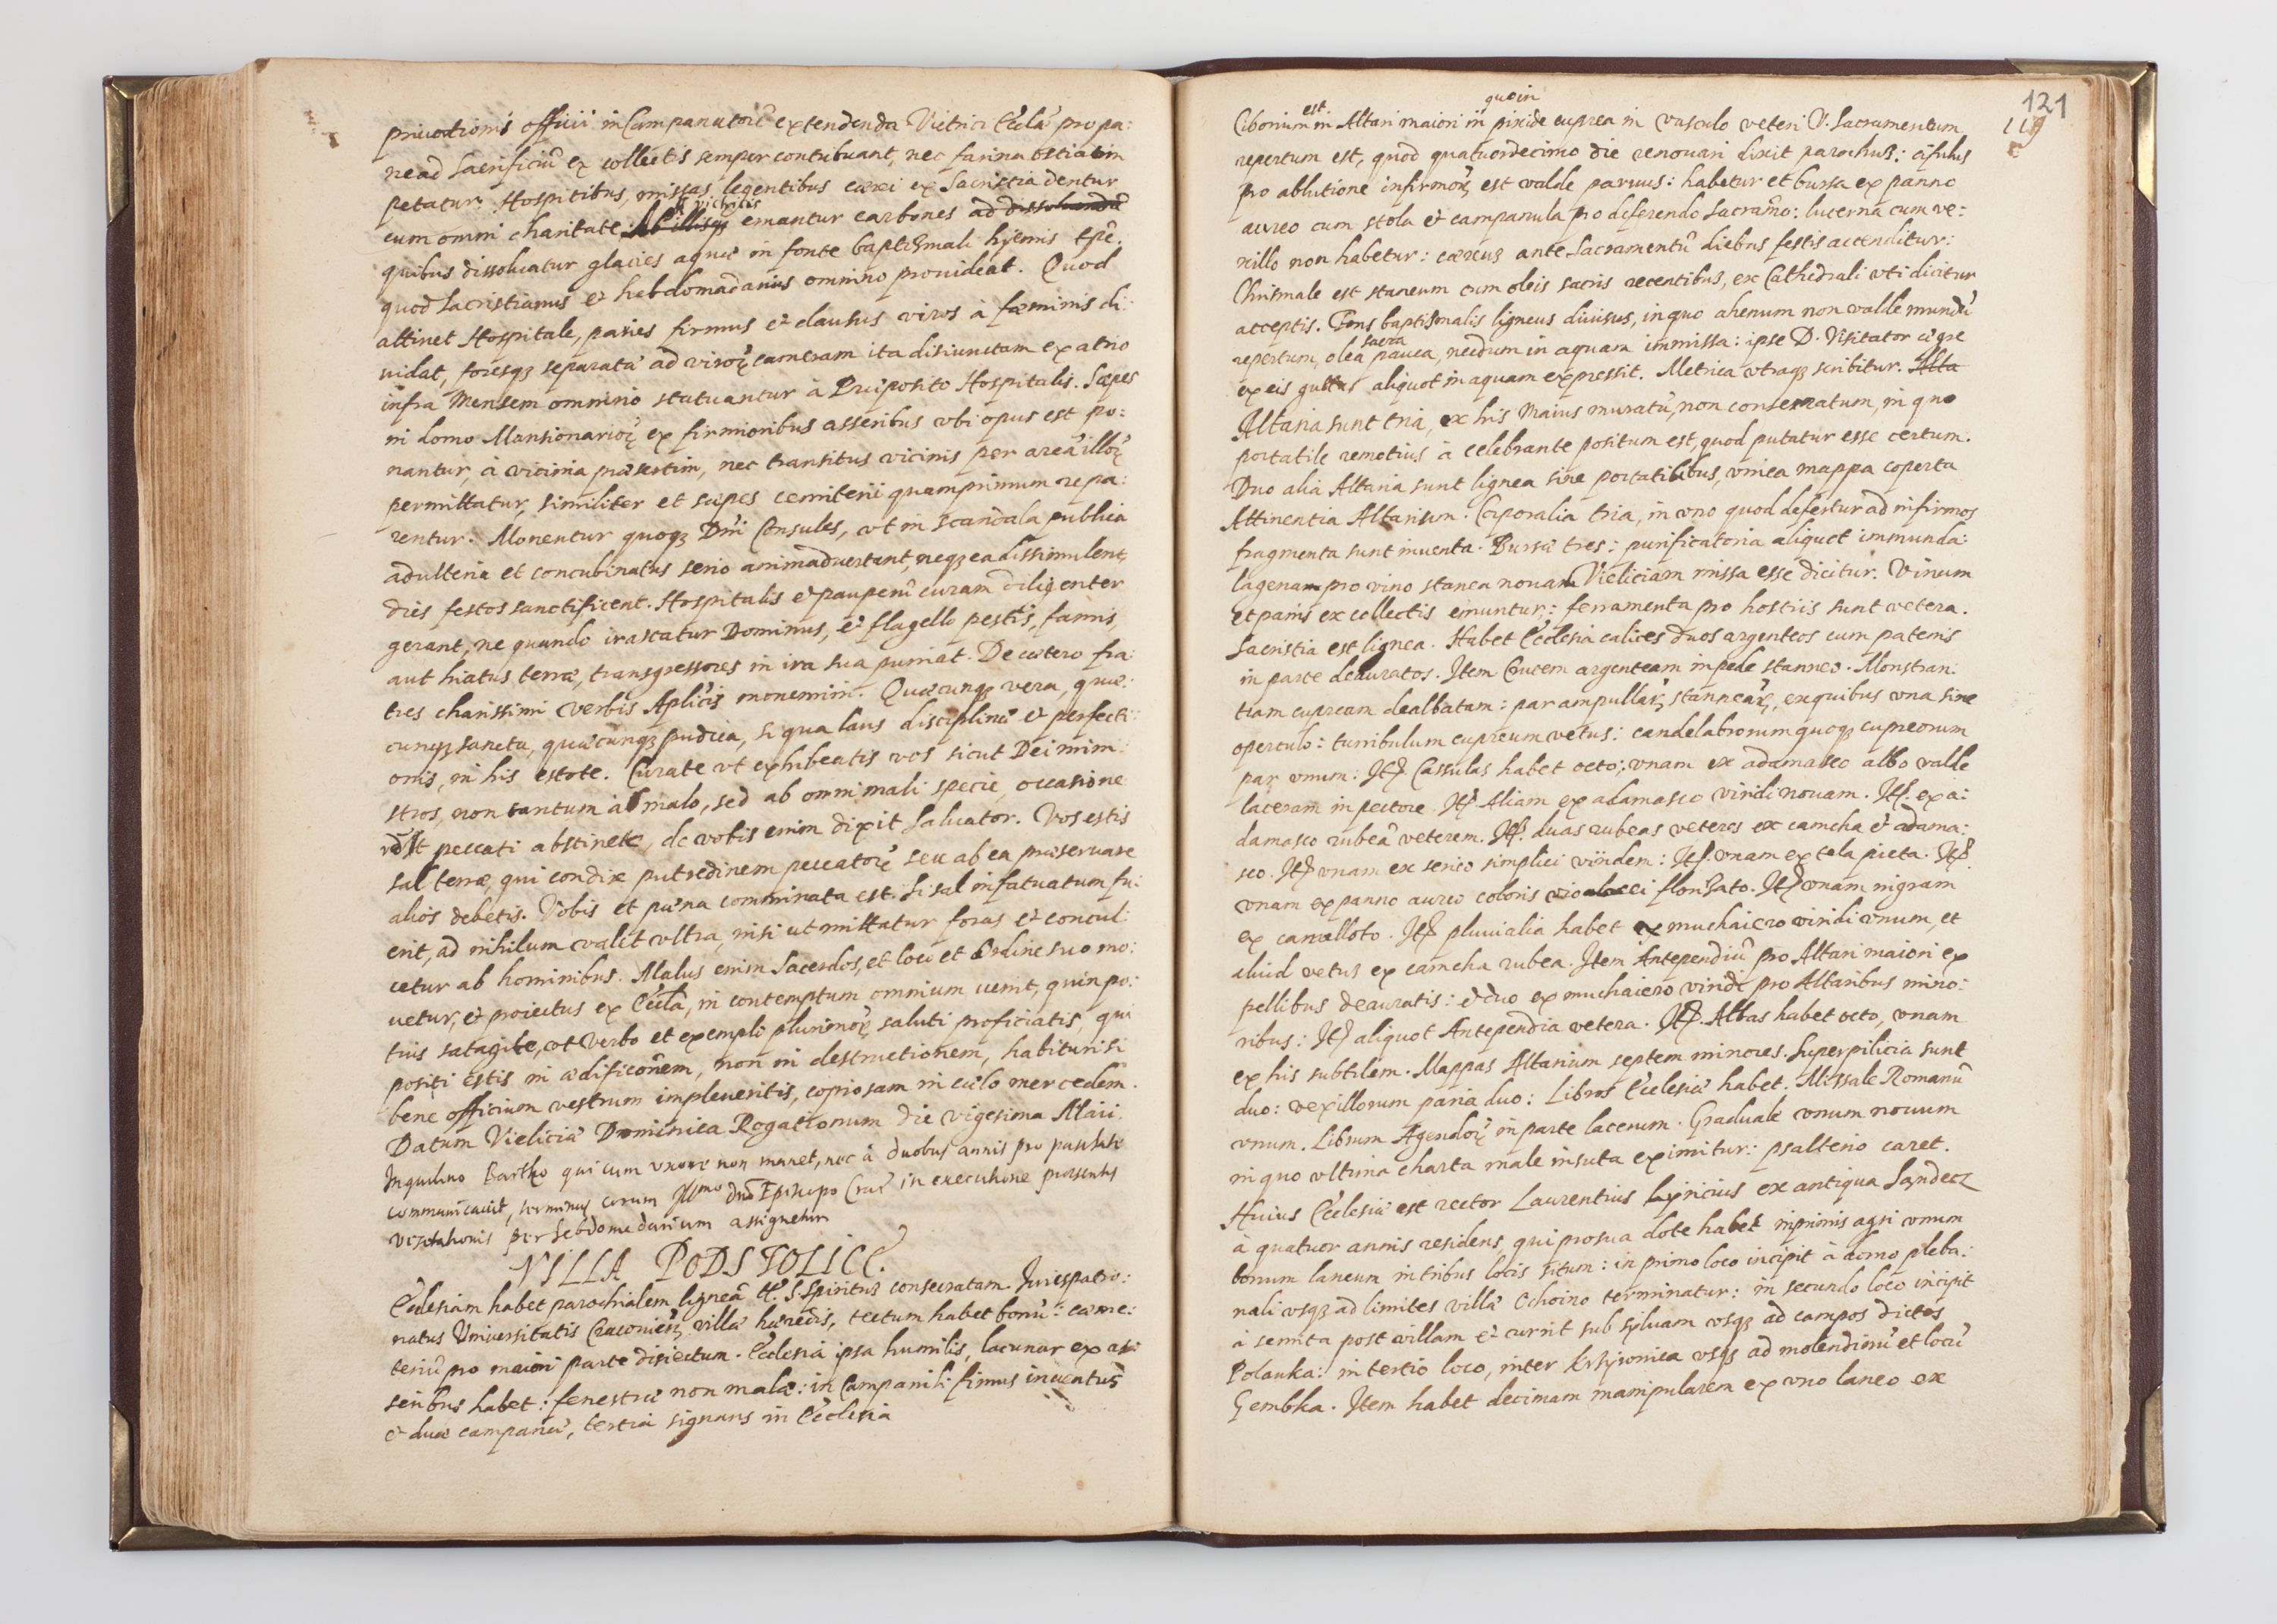 privationis officii in Campanatorē extendenda Vitrici Eccłæ pro pa:
ne ad Sacrificiū ex collectis semper contribuant, nec farina ostiatim
petatur. Hospitibus, missas legentibus cerei ex Sacristia dentur
cum omni charitate. emantur carbones ad dissoluendā
quibus dissoluatur glacies aquæ in fonte baptismali hÿemis tpē.
quod Sacristianus et hebdomadarius omnino prouideat. Quod
attinet Hospitale, paries firmus et clausus viros à fœminis di:
uidat, foresq; separatæ ad viroꝝ cameram ita disiunctam ex atrio
infra Mensem omnino statuantur à Præposito Hospitalis. Sæpes
in domo Mansionarioꝝ ex firmioribus asseribus vbi opus est po:
nantur, à vicinia præsertim, nec transitus vicinis per areā illoꝝ
permittatur, similiter et sæpes cemiterii quamprimum repa:
rentur. Monentur quoq; Dn̄i Consules, vt in scandala publica
adulteria et concubinatus serio animaduertant, neq; ea dissimulent,
dies festos sanctificent. Hospitalis et pauperū curam diligenter
gerant, ne quando irascatur Dominus, et flagello pestis, famis,
aut hiatus terræ, transgressores in ira sua puniat. De cætero fra:
tres charissimi verbis Aplicis monemini. Quæcunq; vera, quæ:
cunq; sancta, quæcunq; pudica, si qua laus disciplinæ et perfecti:
onis, in his estote. Curate vt exhibeatis vos sicut Dei mini:
stros, non tantum à malo, sed ab omni mali specie, occasione
peccati abstinete, de vobis enim dixit Saluator. Vos estis
sal terræ, qui condire putredinem peccatorū seu ab ea præseruare
alios debetis. Vobis et pæna comminata est. Si sal infatuatum fu:
erit, ad nihilum valet vltra, nisi ut mittatur foras et concul:
cetur ab hominibus. Malus enim Sacerdos, et loco et Ordine suo mo:
uetur, et proiectus ex Eccła, in contemptum omnium uenit, quin po:
tius satagite, vt Verbo et exempli plurimoꝝ saluti proficiatis, qui
positi estis in ædificōnem, non in destructionem, habituri si
bene officium vestrum impleueritis, copiosam in cælo mercedem.
Datum Vieliciæ Dominica Rogationum die vigesima Maii.
Inquilino Bartko qui cum vxore non manet, nec à duobus annis pro paschate
communicauit, terminus coram Illmo dn̄o Episcopo Crac̄ in executione præsentis
visitationis per hebdomadarium assignetur
VILLA PODSTOLICE.
Ecclesiam habet parochialem ligneā tt. S. Spiritus consecratam. Iurispatro:
natus Vniuersitatis Cracouieñ villæ hæredis, tectum habet bonū: cæme:
teriū pro maiori parte disiectum. Ecclesia ipsa humilis, lacunar ex as:
seribus habet: fenestræ non malæ: in Campanili fimus inuentus
et duæ campanæ, tertia signans in Ecclesia
121
119
quo in
est
Ciborium in Altari maiori in pixide cuprea in vasculo veteri V. Sacramentum
repertum est, quod quatuordecimo die renouari dixit parochus: cifulus
pro ablutione infirmoꝝ est valde paruus: habetur et bursa ex panno
aureo cum stola et campanula pro deferendo Sacramō: lucerna cum ve:
xillo non habetur: cæreus ante Sacramentū diebus festis accenditur:
Chrismale est staneum cum oleis sacris recentibus, ex Cathedrali vti dicitur
acceptis. Fons baptismalis ligneus diuisus, in quo ahenum non valde mundū
sacra
repertum, olea pauca, necdum in aquam immissa: ipse D. Visitator ægre
ex eis guttas aliquot in aquam expressit. Metrica vtraq; scribitur. Alta
Altaria sunt tria, ex his Maius muratū, non consecratum, in quo
portatile remotius à celebrante positum est, quod putatur esse certum.
Duo alia Altaria sunt lignea sine portatilibus, vnica mappa coperta
Attinentia Altarium. Corporalia tria, in vno quod defertur ad infirmos
fragmenta sunt inuenta. Bursæ tres: purificatoria aliquot immunda:
lagenam pro vino stanea nouam Vieliciam missa esse dicitur. Vinum
et panis ex collectis emuntur: ferramenta pro hostiis sunt vetera.
Sacristia est lignea. Habet Ecclesia calices duos argenteos cum patenis
in parte deauratos. Item Crucem argenteam in pede stanneo. Monstran:
tiam cupream dealbatam: par ampullaꝝ stanneaꝝ, ex quibus vna sine
operculo: turribulum cupreum vetus: candelabrorum quoq; cupreorum
par vnum: Itē Cassulas habet octo; vnam ex adamasco albo valde
laceram in pectore. Itē Aliam ex adamasco viridi nouam. Itē. ex a:
damasco rubeā veterem. Itē. duas rubeas veteres ex camcha et adama:
sco. Itē vnam ex serico simplici viridem: Itē. vnam ex tela picta. Itē
vnam ex panno aureo coloris violacei florisato. Itē vnam nigram
ex camelloto. Itē pluuialia habet ex muchaiero viridi vnum, et
aliud vetus ex camcha rubea. Item Antependiū pro Altari maiori ex
pellibus deauratis: et duo ex muchaiero viridi pro Altaribus mino:
ribus: Itē aliquot Antependia vetera. Itē. Albas habet octo, vnam
ex his subtilem. Mappas Altarium septem minores. Superpilicia sunt
duo: vexillorum paria duo: Libros Ecclesia habet. Missale Romanū
vnum. Librum Agendoꝝ in parte lacerum. Graduale vnum nouum
in quo vltima charta male insuta eximitur: psalterio caret.
Huius Ecclesiæ est rector Laurentius ex antiqua Sandecz
à quatuor annis residens, qui pro sua dote habet inprimis agri vnum
bonum laneum in tribus locis situm: in primo loco incipit à domo pleba:
nali vsq; ad limites villæ Ochoino terminatur: in secundo loco incipit
à semita post villam et currit sub syluam vsq; ad campos dictos
Polanka: in tertio loco, inter Krzÿwnica vsq; ad molendinū et locū
Gembka. Item habet decimam manipularem ex vno laneo ex